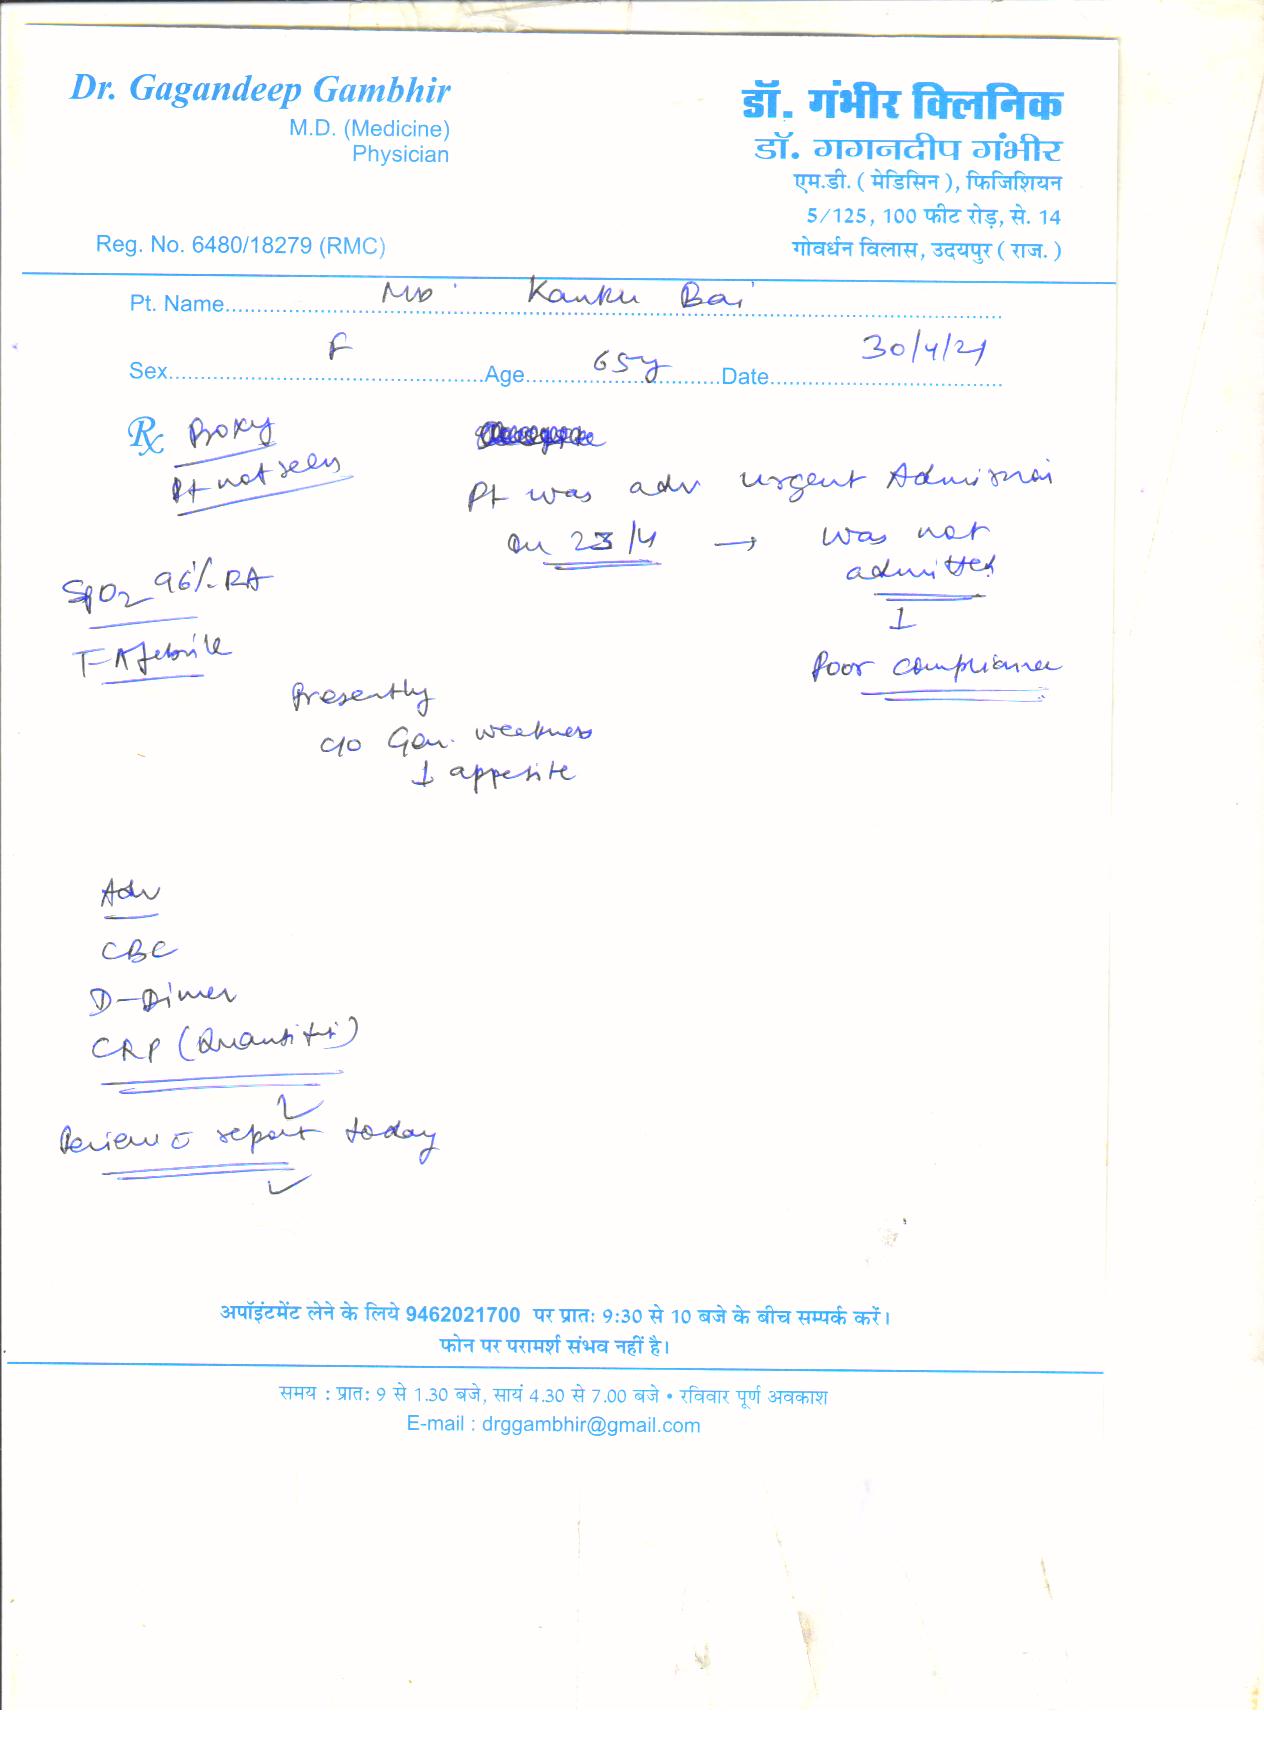 Dr. Gagandeep Gambhir
M.D. (Medicine)
Physician
Reg. No. 6480/18279 (RMC)
डॉ. गंभीर क्लिनिक
डॉ. गगनदीप गंभीर
एम.डी. ( मेडिसिन ), फिजिशियन
5/125, 100 फीट रोड़, से. 14
गोवर्धन विलास, उदयपुर ( राज. )
Pt. Name Mrs Kanku Bai
Sex F Age 65y Date 30/4/21
Rx Proxy
Pt not seen
Pt was adv urgent Admission
on 23/4 → was not
admitted
↓
Poor compliance
SpO2 96% RA
T-Afebrile
Presently
c/o Gen. weakness
↓ appetite
Adv
CBC
D-Dimer
CRP (Quantiti)
Review c report today
अपॉइंटमेंट लेने के लिये 9462021700 पर प्रातः 9:30 से 10 बजे के बीच सम्पर्क करें।
फोन पर परामर्श संभव नहीं है।
समय : प्रातः 9 से 1.30 बजे, सायं 4.30 से 7.00 बजे • रविवार पूर्ण अवकाश
E-mail : drggambhir@gmail.com